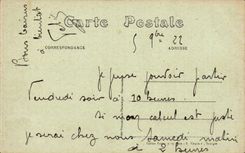 Carte Postale
CORRESPONDANCE
ADRESSE
Bons baisers
à bientôt
5 9bre 22
je pense pouvoir partir
Vendredi soir à 10 heures.
si mon calcul est juste
je serai chez nous samedi matin
à 2 heures